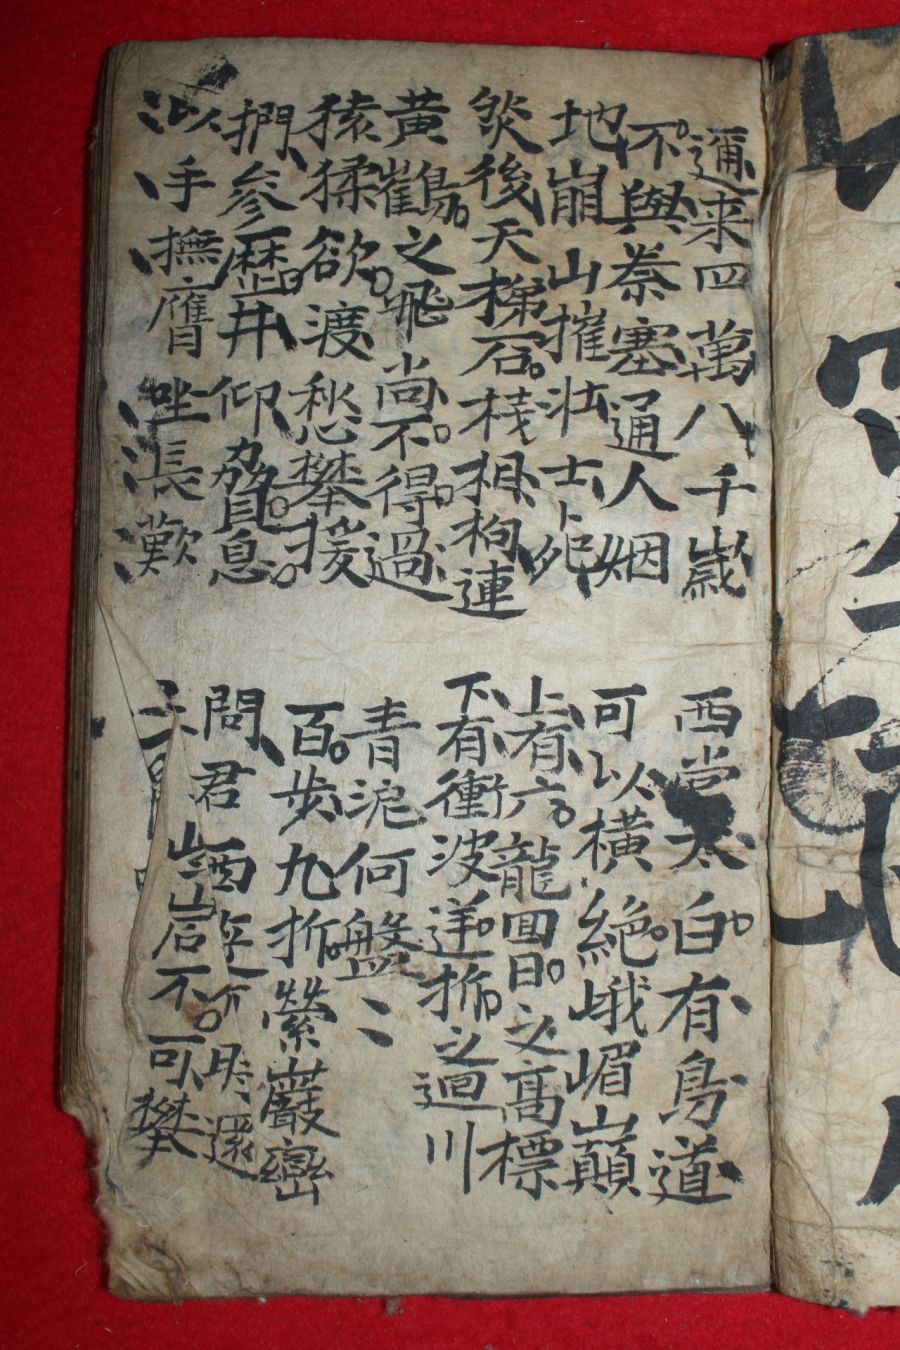 邇来四萬八千歲
不與秦塞通人烟
西當太白有鳥道
可以橫絶峨嵋山巔
地崩山摧壯士死
然後天梯石棧相拘連
上有六龍回日之高標
下有衝波逆折之迴川
黃鶴之飛尚不得過
猿猱欲渡愁攀援
青泥何盤〻
百步九折縈巖巒
捫參歷井仰脅息
以手撫膺坐長歎
問君西遊何時還
岩不可攀